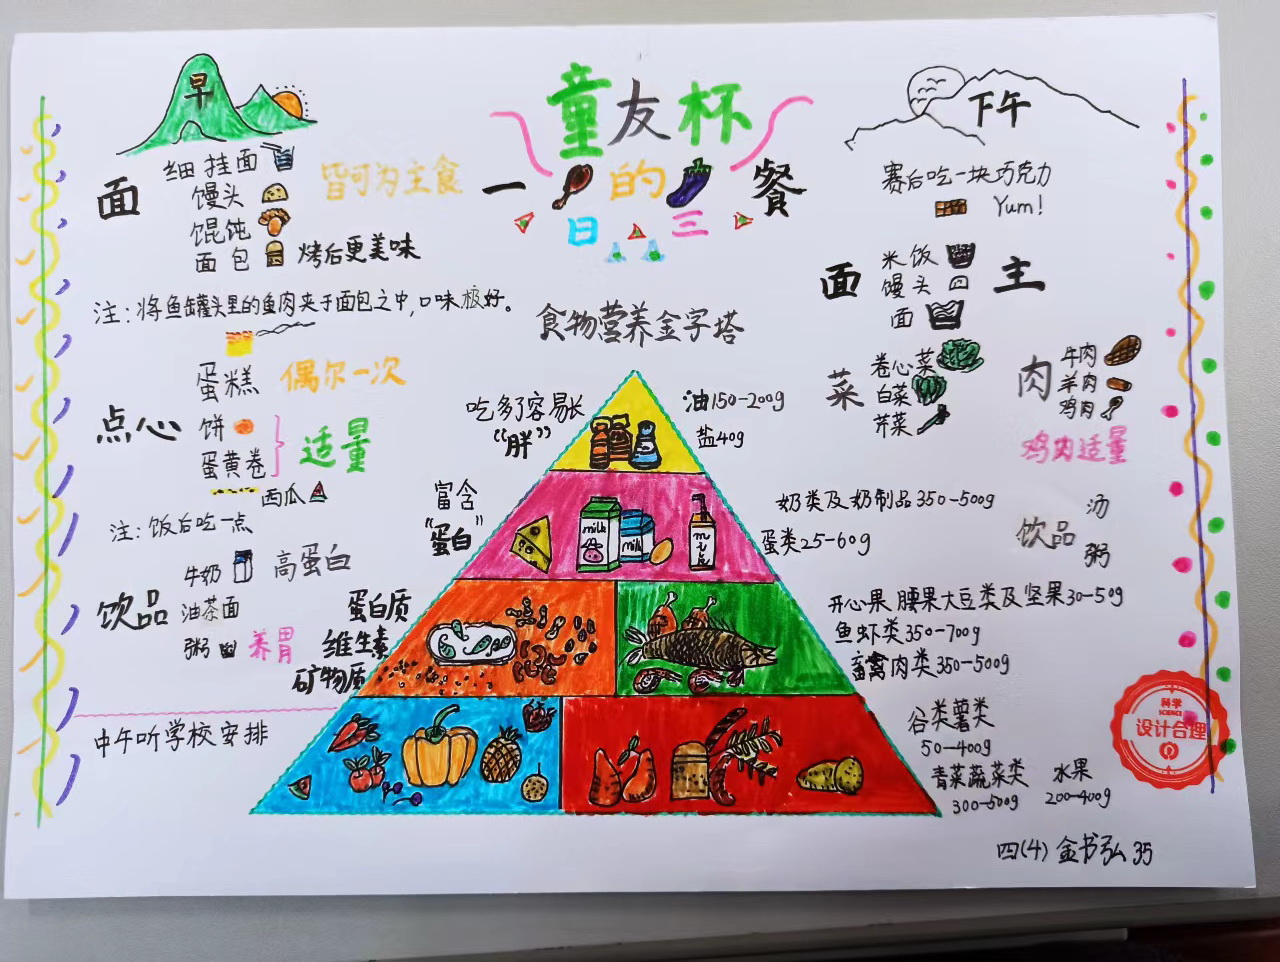 童友杯
一日的三餐
早
面
细挂面
馒头
馄饨
面包
皆可为主食
烤后更美味
注：将鱼罐头里的鱼肉夹于面包之中，口味极好。
点心
蛋糕
偶尔一次
饼
蛋黄卷
适量
西瓜
注：饭后吃一点
饮品
牛奶
高蛋白
油茶面
粥
养胃
中午听学校安排
食物营养金字塔
吃多了容易长
“胖”
油150-200g
盐40g
富含
“蛋白”
milk
milk
milk
奶类及奶制品350-500g
蛋类25-60g
蛋白质
维生素
矿物质
开心果 腰果大豆类及坚果30-50g
鱼虾类350-700g
畜禽肉类350-500g
谷类薯类
50-400g
青菜蔬菜类
300-500g
水果
200-400g
下午
赛后吃一块巧克力
Yum!
面
米饭
馒头
面
主
菜
卷心菜
白菜
芹菜
肉
牛肉
羊肉
鸡肉
鸡肉适量
饮品
汤
粥
科学
SCIENCE
设计合理
四(4) 金书弘 35